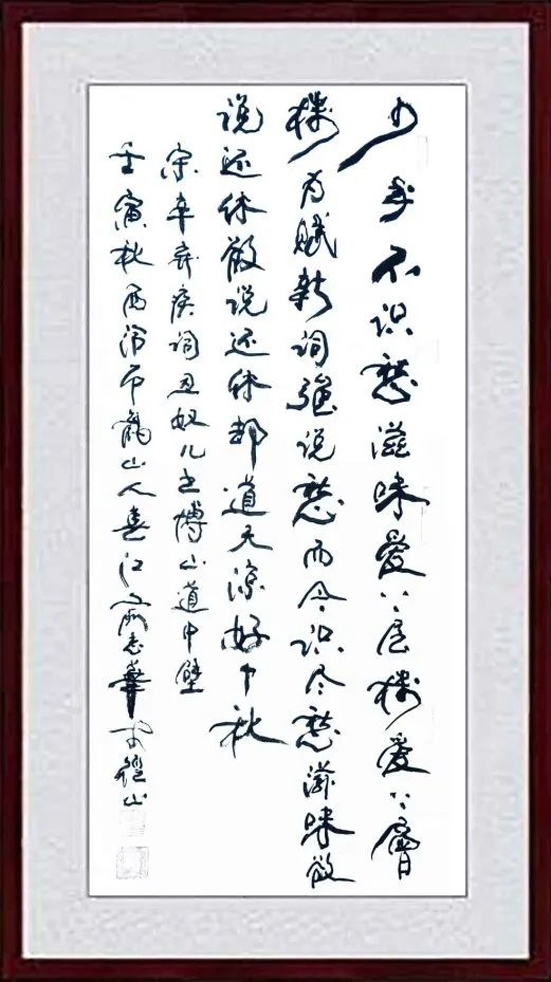 少年不识愁滋味爱上层楼爱上層
楼为赋新词强说愁而今识尽愁滋味欲
说还休欲说还休却道天凉好个秋
宋辛弃疾词丑奴儿书博山道中壁
壬寅秋雨龍山人喜江志華山